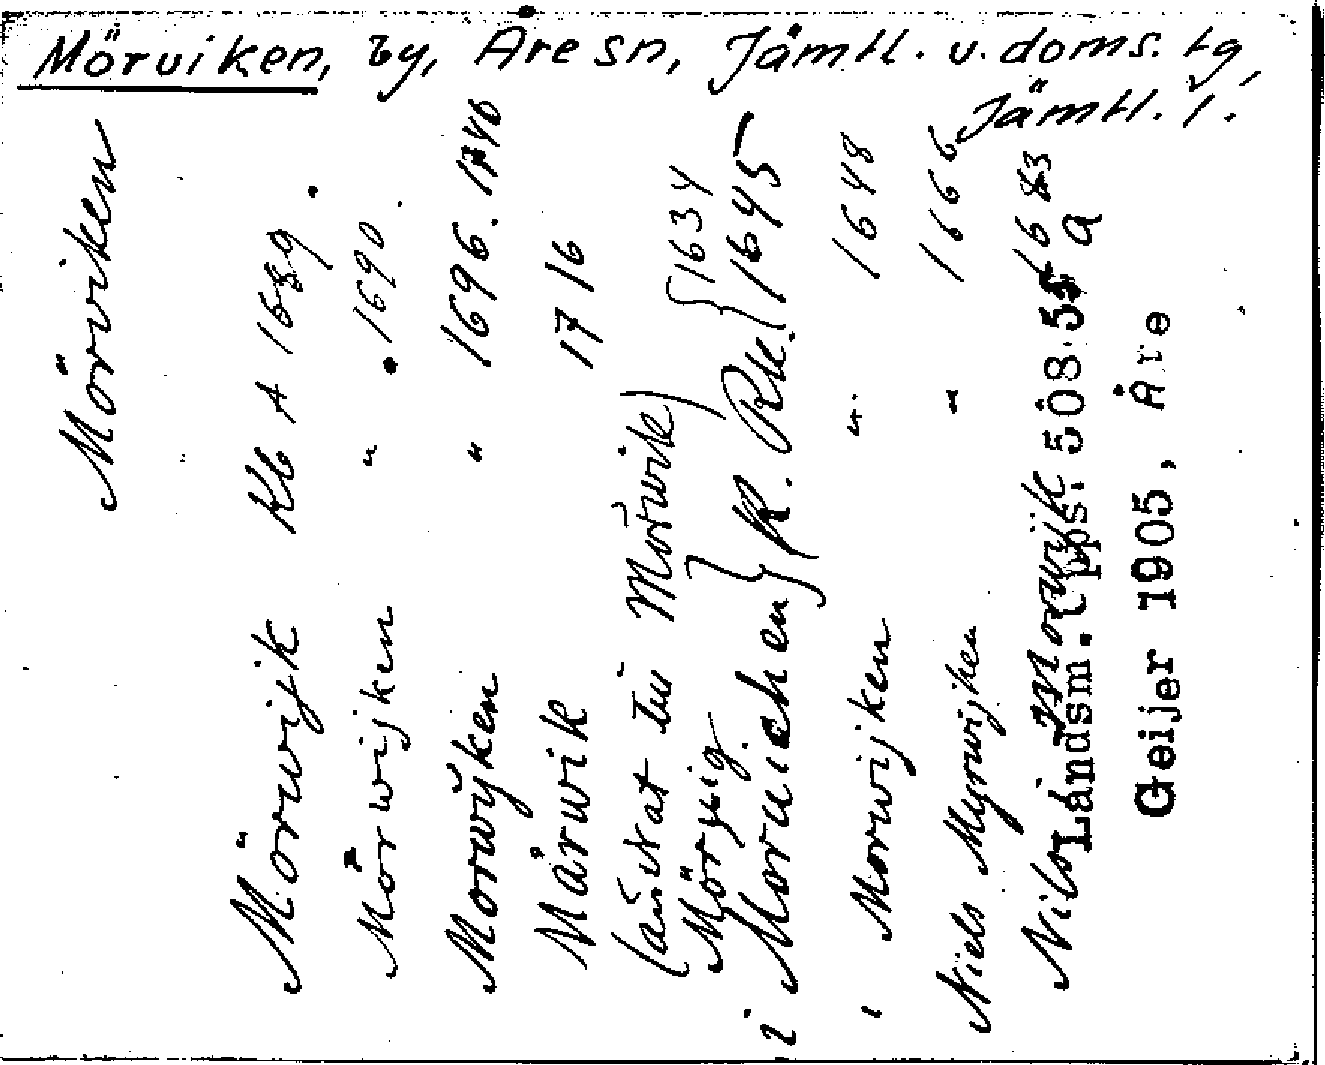 Mörviken, by, Åre sn, Jämtl. v. doms. tg,
Jämtl. l.
Mörviken
Mörwijk Kb A 1689
Mörwijken " 1690
Morwÿken " 1696. 1746
Mårwik 17 16
(ändrat till Mörwik)
Mörvig. } R. Rk. { 1634
i Moruichen } 1645
i Morwijken " 1648
Niels Myrwijken " 1666
Nils Morwijk 1683
Landsm. Upps. 508:55 a
Geijer 1905, Åre